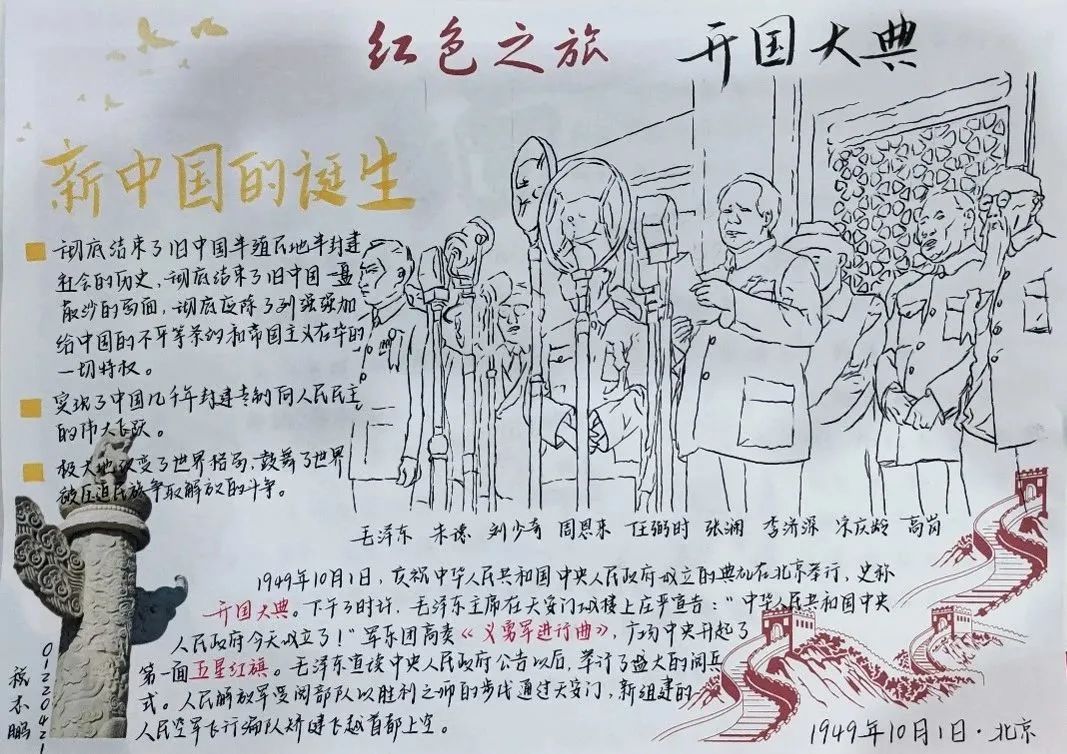 红色之旅 开国大典
新中国的诞生
彻底结束了旧中国半殖民地半封建
社会的历史，彻底结束了旧中国一盘
散沙的局面，彻底废除了列强强加
给中国的不平等条约和帝国主义在华的
一切特权。
实现了中国几千年封建专制向人民民主
的伟大飞跃。
极大地改变了世界格局，鼓舞了世界
被压迫民族争取解放的斗争。
毛泽东 朱德 刘少奇 周恩来 任弼时 张澜 李济深 宋庆龄 高岗
1949年10月1日，庆祝中华人民共和国中央人民政府成立的典礼在北京举行，史称
开国大典。下午3时许，毛泽东主席在天安门城楼上庄严宣告："中华人民共和国中央
人民政府今天成立了！"军乐团高奏《义勇军进行曲》，广场中央升起了
第一面五星红旗。毛泽东宣读中央人民政府公告以后，举行了盛大的阅兵
式。人民解放军受阅部队以胜利之师的步伐通过天安门，新组建的
人民空军飞行编队矫健飞越首都上空。
01220421
杰鹏
1949年10月1日·北京